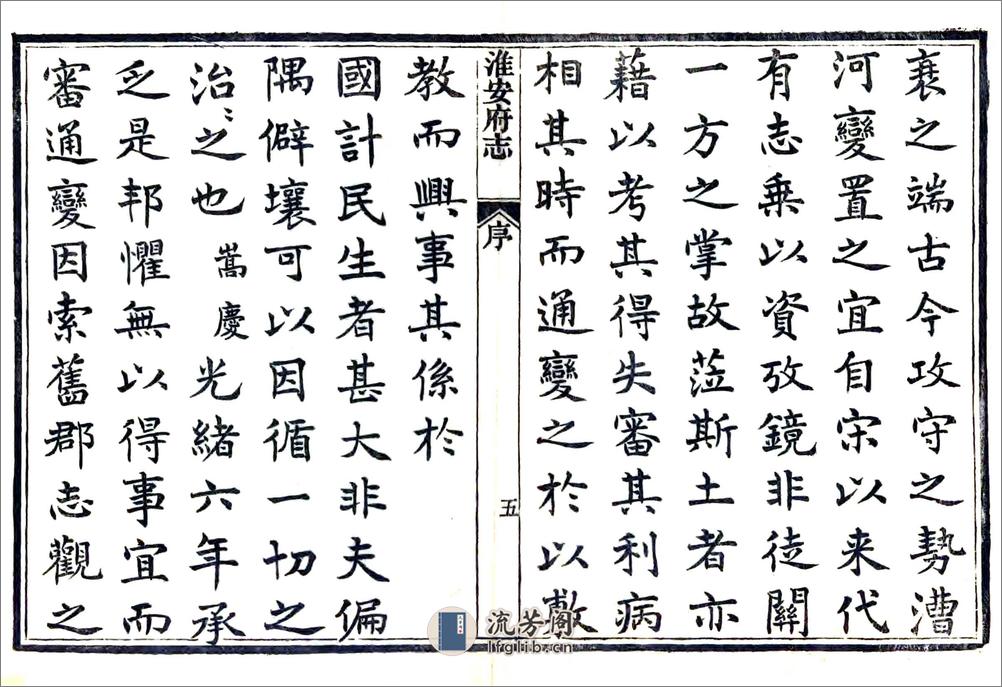 衰之端古今攻守之勢漕
河變置之宜自宋以来代
有志乗以資攷鏡非徒關
一方之掌故蒞斯土者亦
藉以考其得失審其利病
相其時而通變之於以敷
淮安府志
序
五
教而興事其係於
國計民生者甚大非夫偏
隅僻壤可以因循一切之
治治之也嵩慶光緒六年承
乏是邦懼無以得事宜而
審通變因索舊郡志觀之
流芳阁
lfglib.cn